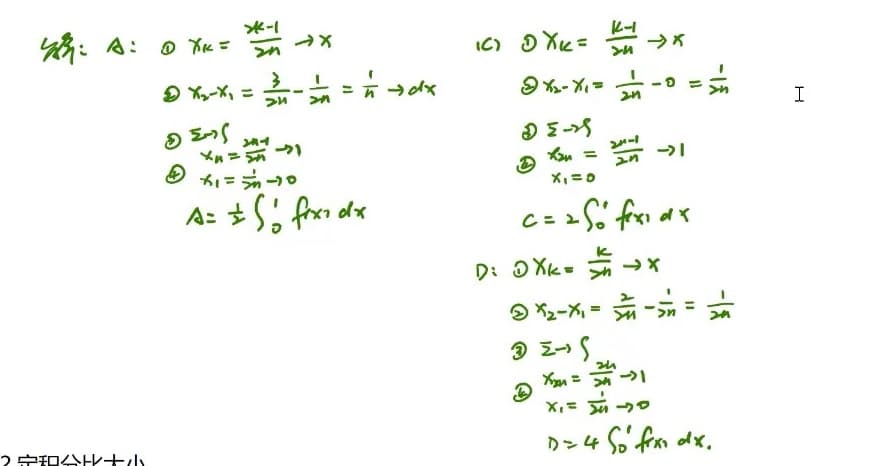 分析: A: ① xₖ = (2k-1)/2n → x
② x₂-x₁ = 3/2n - 1/2n = 1/n → dx
③ Σ→∫
④ xₙ = (2n-1)/2n → 1
x₁ = 1/2n → 0
A = 1/2 ∫₀¹ f(x) dx
(C) ① xₖ = (k-1)/2n → x
② x₂-x₁ = 1/2n - 0 = 1/2n
③ Σ→∫
④ x₂ₙ = (2n-1)/2n → 1
x₁ = 0
C = 2∫₀¹ f(x) dx
D: ① xₖ = k/2n → x
② x₂-x₁ = 2/2n - 1/2n = 1/2n
③ Σ→∫
④ x₂ₙ = 2n/2n → 1
x₁ = 1/2n → 0
D = 4∫₀¹ f(x) dx.
2 定积分比大小